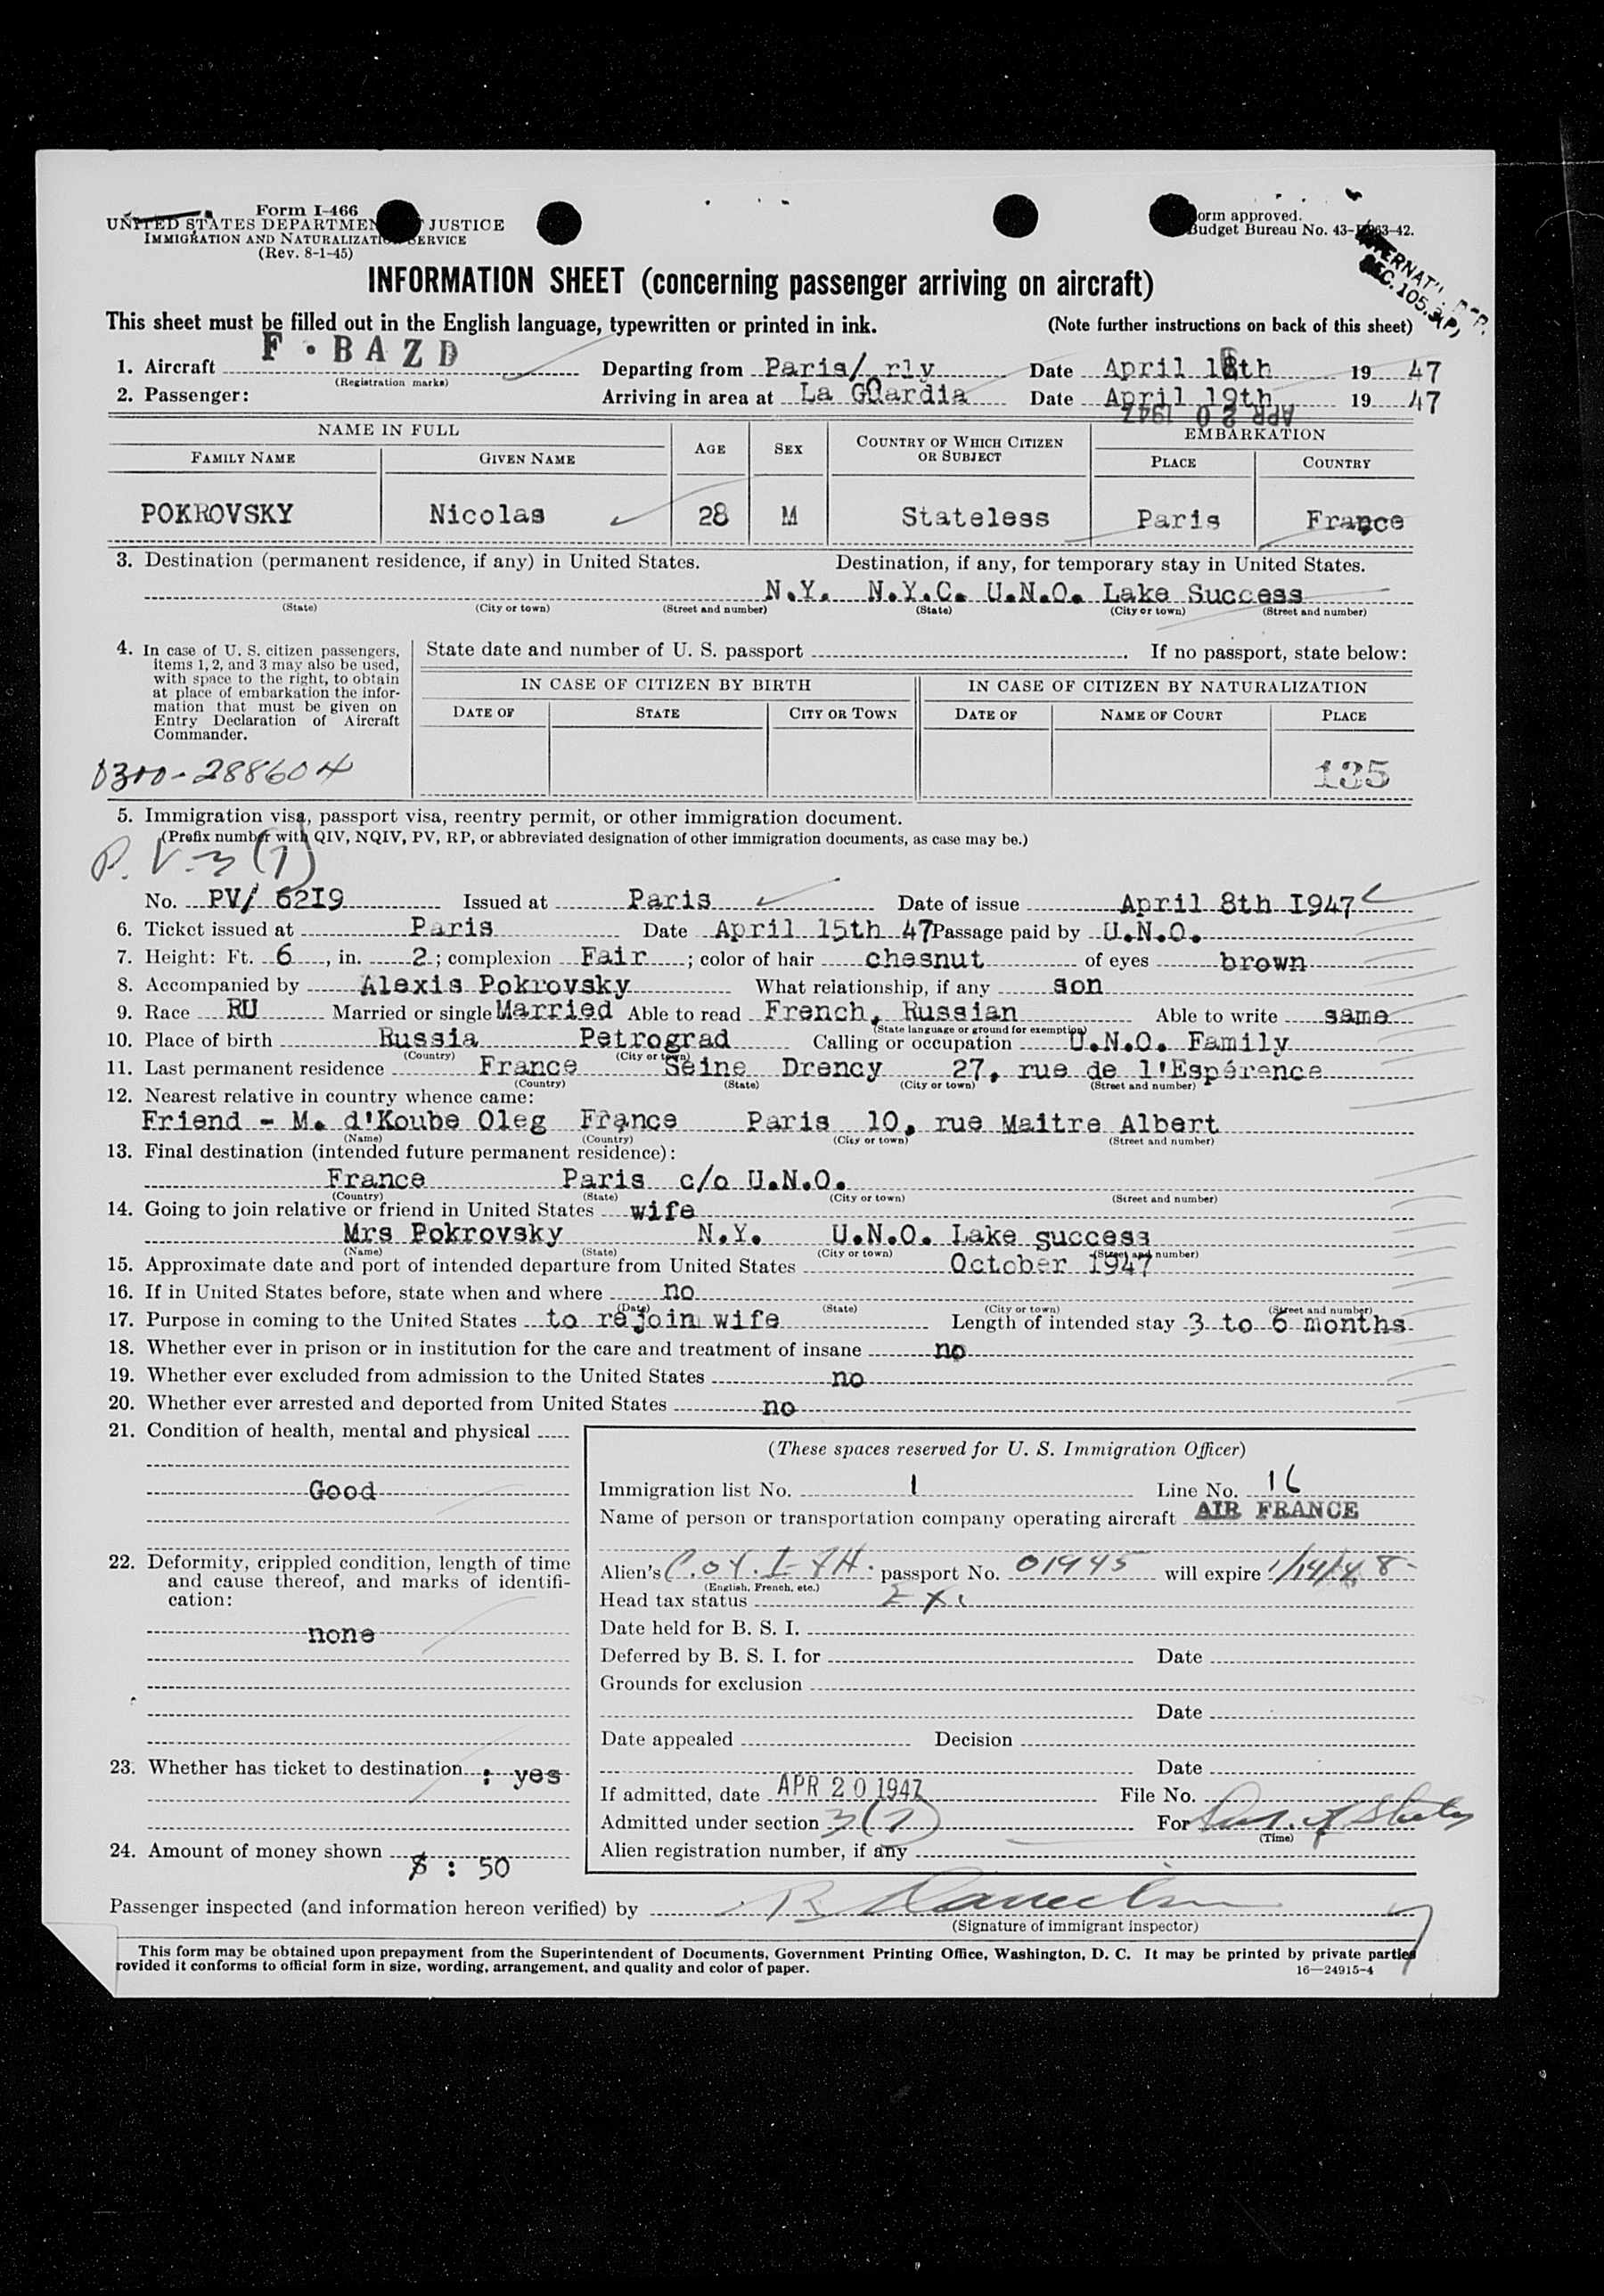 Form I-466
UNITED STATES DEPARTMENT JUSTICE
IMMIGRATION AND NATURALIZATION SERVICE
(Rev. 8-1-45)
orm approved.
Budget Bureau No. 43- 63-42.
SEC. 105.3(P)
INFORMATION SHEET (concerning passenger arriving on aircraft)
This sheet must be filled out in the English language, typewritten or printed in ink. (Note further instructions on back of this sheet)
1. Aircraft F·BAZD Departing from Paris/ rly Date April 18th 19 47
(Registration marks)
2. Passenger: Arriving in area at La GUardia Date April 19th 19 47
APR 20 1947
NAME IN FULL AGE SEX COUNTRY OF WHICH CITIZEN OR SUBJECT EMBARKATION
FAMILY NAME GIVEN NAME PLACE COUNTRY
POKROVSKY Nicolas 28 M Stateless Paris France
3. Destination (permanent residence, if any) in United States. Destination, if any, for temporary stay in United States.
N.Y. N.Y.C. U.N.O. Lake Success
(State) (City or town) (Street and number) (State) (City or town) (Street and number)
4. In case of U. S. citizen passengers, items 1, 2, and 3 may also be used, with space to the right, to obtain at place of embarkation the information that must be given on Entry Declaration of Aircraft Commander.
State date and number of U. S. passport . If no passport, state below:
IN CASE OF CITIZEN BY BIRTH IN CASE OF CITIZEN BY NATURALIZATION
DATE OF STATE CITY OR TOWN DATE OF NAME OF COURT PLACE
0300-288604 135
5. Immigration visa, passport visa, reentry permit, or other immigration document.
(Prefix number with QIV, NQIV, PV, RP, or abbreviated designation of other immigration documents, as case may be.)
P.V.-3(7)
No. PV/ 62I9 Issued at Paris Date of issue April 8th I947
6. Ticket issued at Paris Date April 15th 47 Passage paid by U.N.O.
7. Height: Ft. 6, in. 2; complexion Fair; color of hair chesnut of eyes brown
8. Accompanied by Alexis Pokrovsky What relationship, if any son
9. Race RU Married or single Married Able to read French, Russian Able to write same
(State language or ground for exemption)
10. Place of birth Russia Petrograd Calling or occupation U.N.O. Family
(Country) (City or town)
11. Last permanent residence France Seine Drency 27, rue de l'Espérance
(Country) (State) (City or town) (Street and number)
12. Nearest relative in country whence came:
Friend - M. d'Koube Oleg France Paris 10, rue Maitre Albert
(Name) (Country) (City or town) (Street and number)
13. Final destination (intended future permanent residence):
France Paris c/o U.N.O.
(Country) (State) (City or town) (Street and number)
14. Going to join relative or friend in United States wife
Mrs Pokrovsky N.Y. U.N.O. Lake success
(Name) (State) (City or town) (Street and number)
15. Approximate date and port of intended departure from United States October 1947
16. If in United States before, state when and where no
(Date) (State) (City or town) (Street and number)
17. Purpose in coming to the United States to rejoin wife Length of intended stay 3 to 6 months
18. Whether ever in prison or in institution for the care and treatment of insane no
19. Whether ever excluded from admission to the United States no
20. Whether ever arrested and deported from United States no
21. Condition of health, mental and physical
Good
22. Deformity, crippled condition, length of time and cause thereof, and marks of identification:
none
23. Whether has ticket to destination : yes
24. Amount of money shown $ : 50
(These spaces reserved for U. S. Immigration Officer)
Immigration list No. 1 Line No. 16
Name of person or transportation company operating aircraft AIR FRANCE
Alien's passport No. 01945 will expire 1/14/48
(English, French, etc.)
Head tax status Ex.
Date held for B. S. I.
Deferred by B. S. I. for Date
Grounds for exclusion
Date
Date appealed Decision
Date
If admitted, date APR 20 1947 File No.
Admitted under section 3(7) For Dur. of Status
(Time)
Alien registration number, if any
Passenger inspected (and information hereon verified) by
(Signature of immigrant inspector)
This form may be obtained upon prepayment from the Superintendent of Documents, Government Printing Office, Washington, D. C. It may be printed by private parties
rovided it conforms to official form in size, wording, arrangement, and quality and color of paper. 16—24915-4